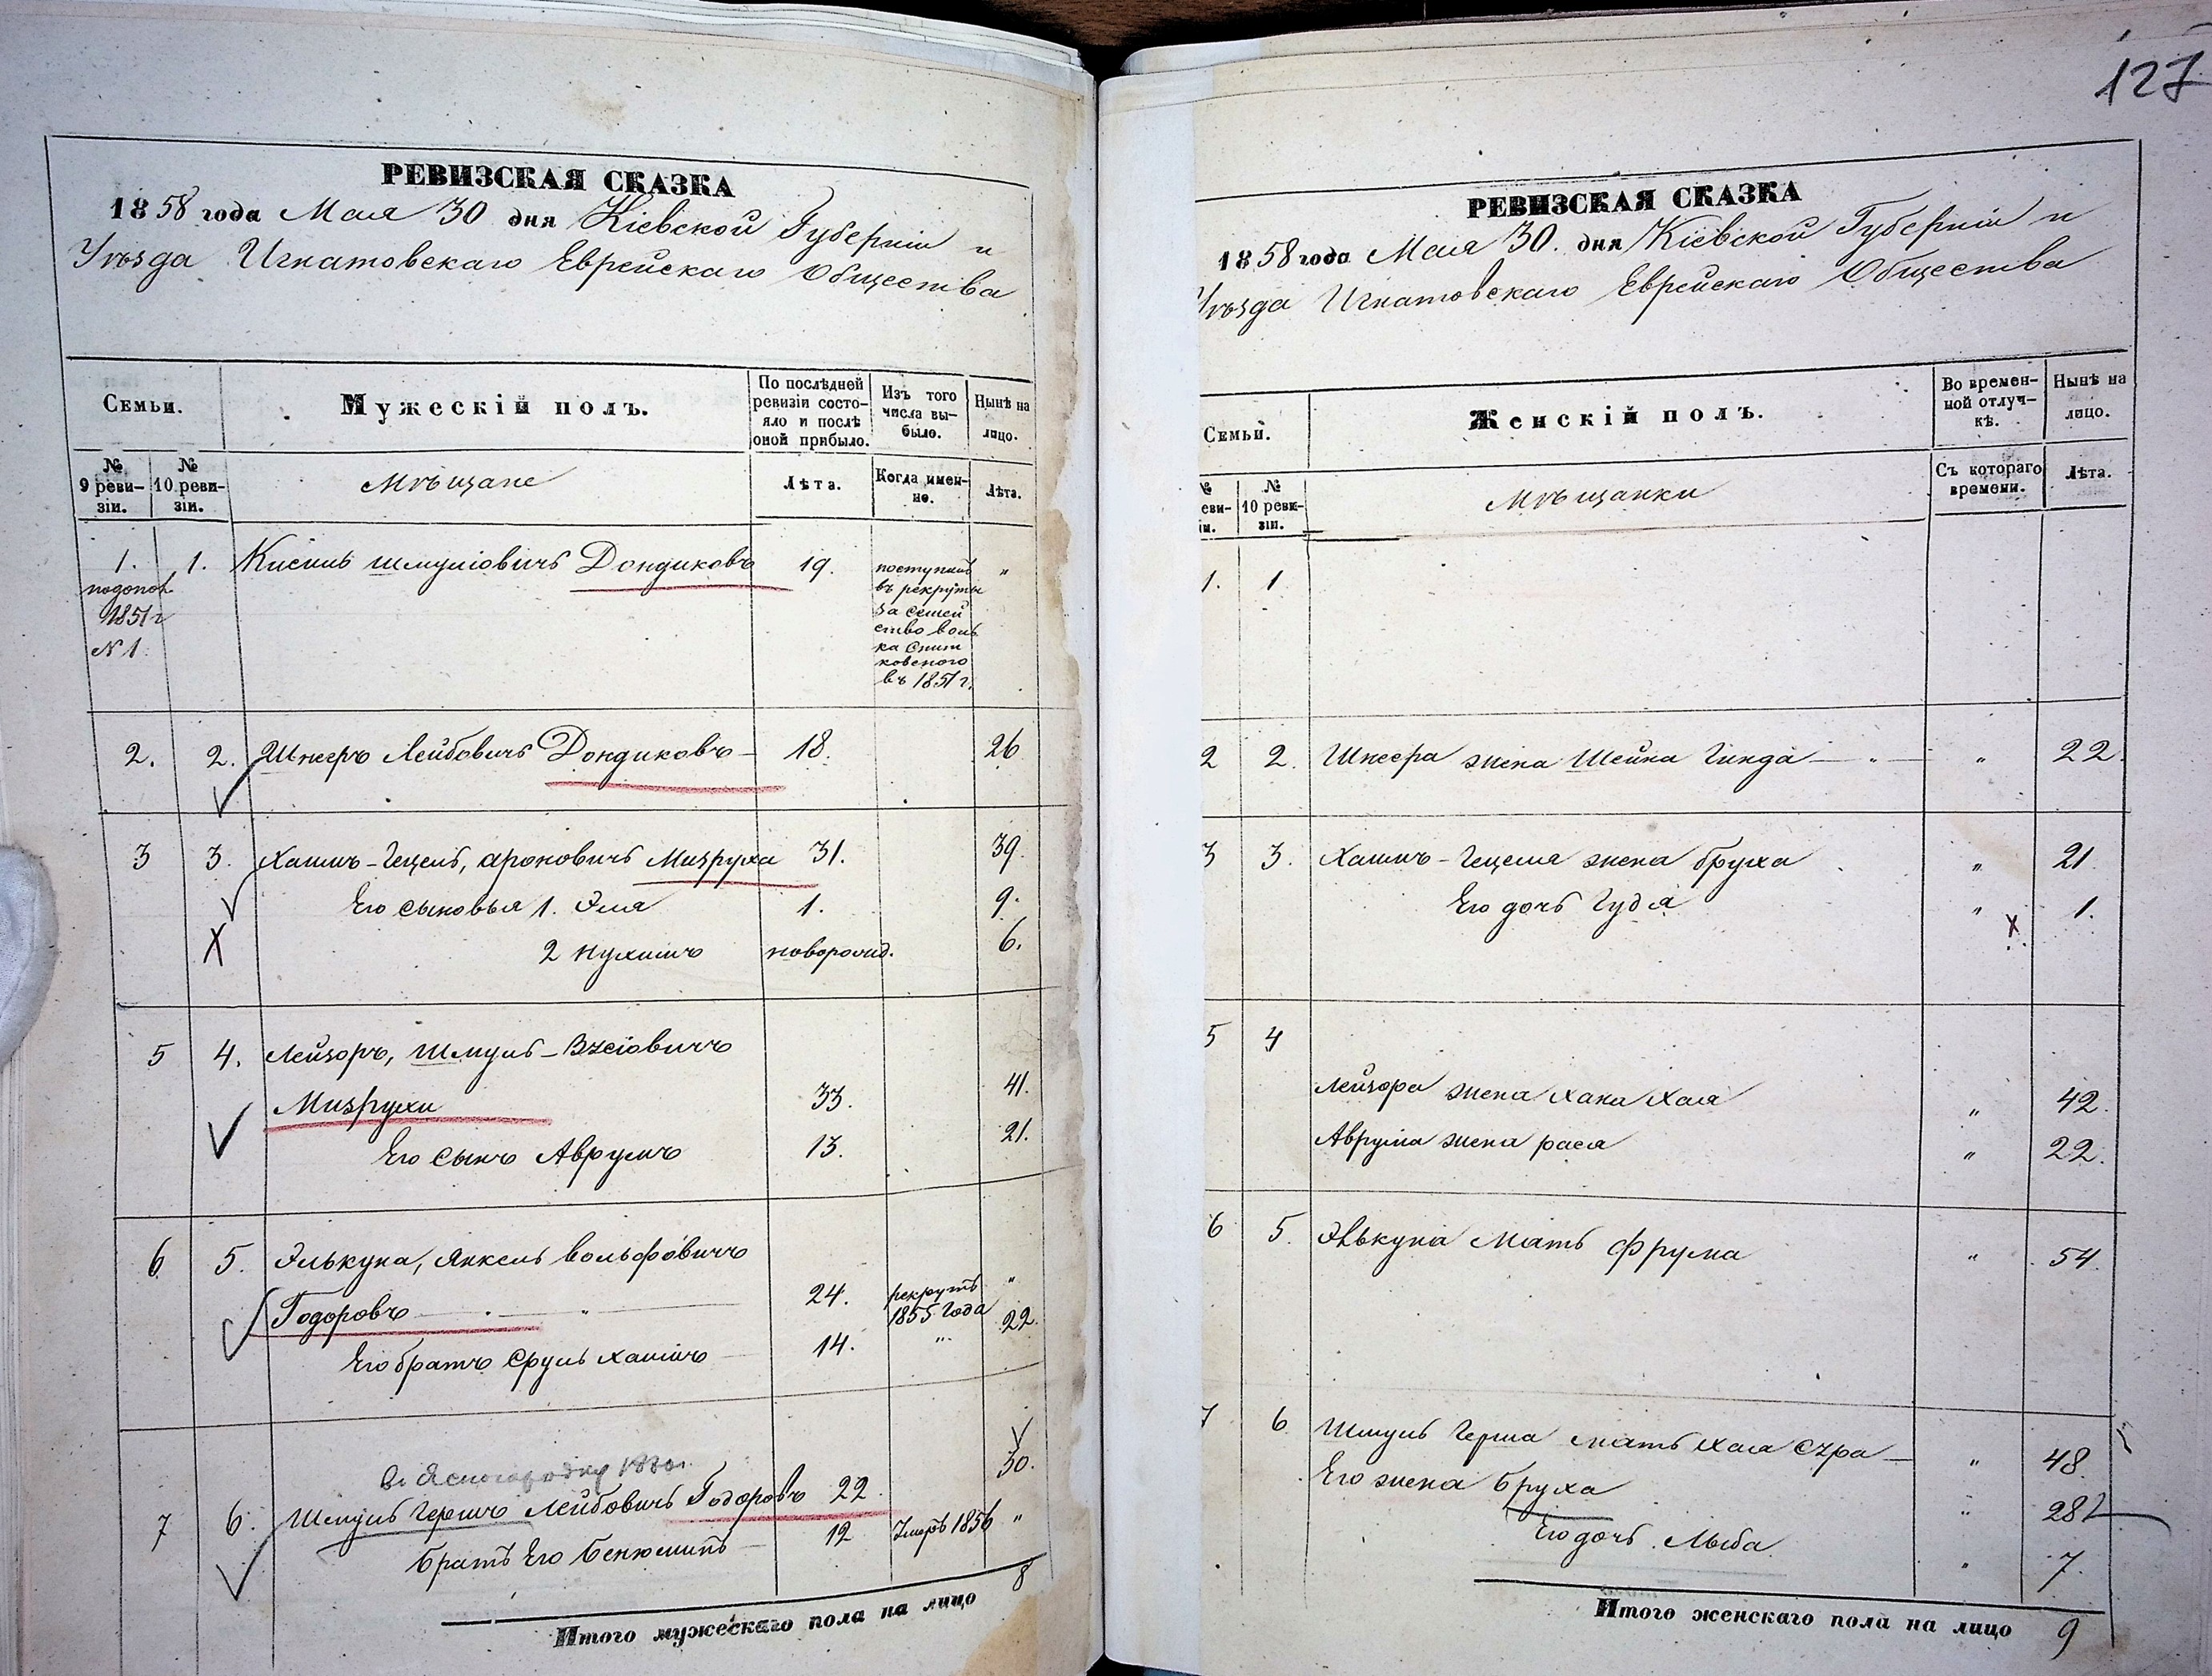 127
РЕВИЗСКАЯ СКАЗКА
1858 года Мая 30 дня Кіевской Губерніи и
Уѣзда Игнатовскаго Еврейскаго Общества
Семьи.
Мужескій полъ.
По послѣдней ревизіи состояло и послѣ оной прибыло.
Изъ того числа выбыло.
Нынѣ на лицо.
№ 9 ревизіи.
№ 10 ревизіи.
Мѣщане
Лѣта.
Когда именно.
Лѣта.
1. 1. Кисиль Шмуліовичъ Дондиковъ 19. "
подопол
1851 г
N 1.
поступилъ
въ рекруты
за семей
ство воль
ка
ковского
въ 1851 г.
2. 2. Шнеръ Лейбовичъ Дондиковъ 18. 26
3 3. Хаимъ-Гецель, ароновичъ Мизруха 31. 39.
Его сыновья 1. Эля 1. 9.
X 2 Нухимъ новорожд. 6.
5 4. Лейзоръ, Шмуль-
Мизрухи 33. 41.
Его сынъ Аврумъ 13. 21.
6 5. Элькуна, Янкель Вольфовичъ
Годоровъ 24. рекрутъ 1855 года "
Его братъ Сруль Хаимъ 14. " 22.
30.
7 6. Шмуль Гершъ Лейбовичъ Годоровъ 22
Братъ Его Бенюминъ 12 Умеръ 1856 "
Итого мужескаго пола на лицо 8
РЕВИЗСКАЯ СКАЗКА
1858 года Мая 30. дня Кіевской Губерніи и
Уѣзда Игнатовскаго Еврейскаго Общества
Семьи.
Женскій полъ.
Во временной отлучкѣ.
Нынѣ на лицо.
№
10 ревизіи.
Мѣщанки
Съ котораго времени.
Лѣта.
1. 1
2 2. Шнеера жена Шейна Гинда " 22.
3 3. Хаимъ-Гецеля жена Бруха " 21.
Его дочь Гудя " X 1.
5 4
Лейзора жена Хана Хая " 42.
Аврума жена рася " 22.
6 5. Элькуна мать Фрума " 54.
7 6 Шмуль Герша мать Хая Сура " 48.
Его жена Бруха " 28
Его дочь Лыба " 7.
Итого женскаго пола на лицо 9